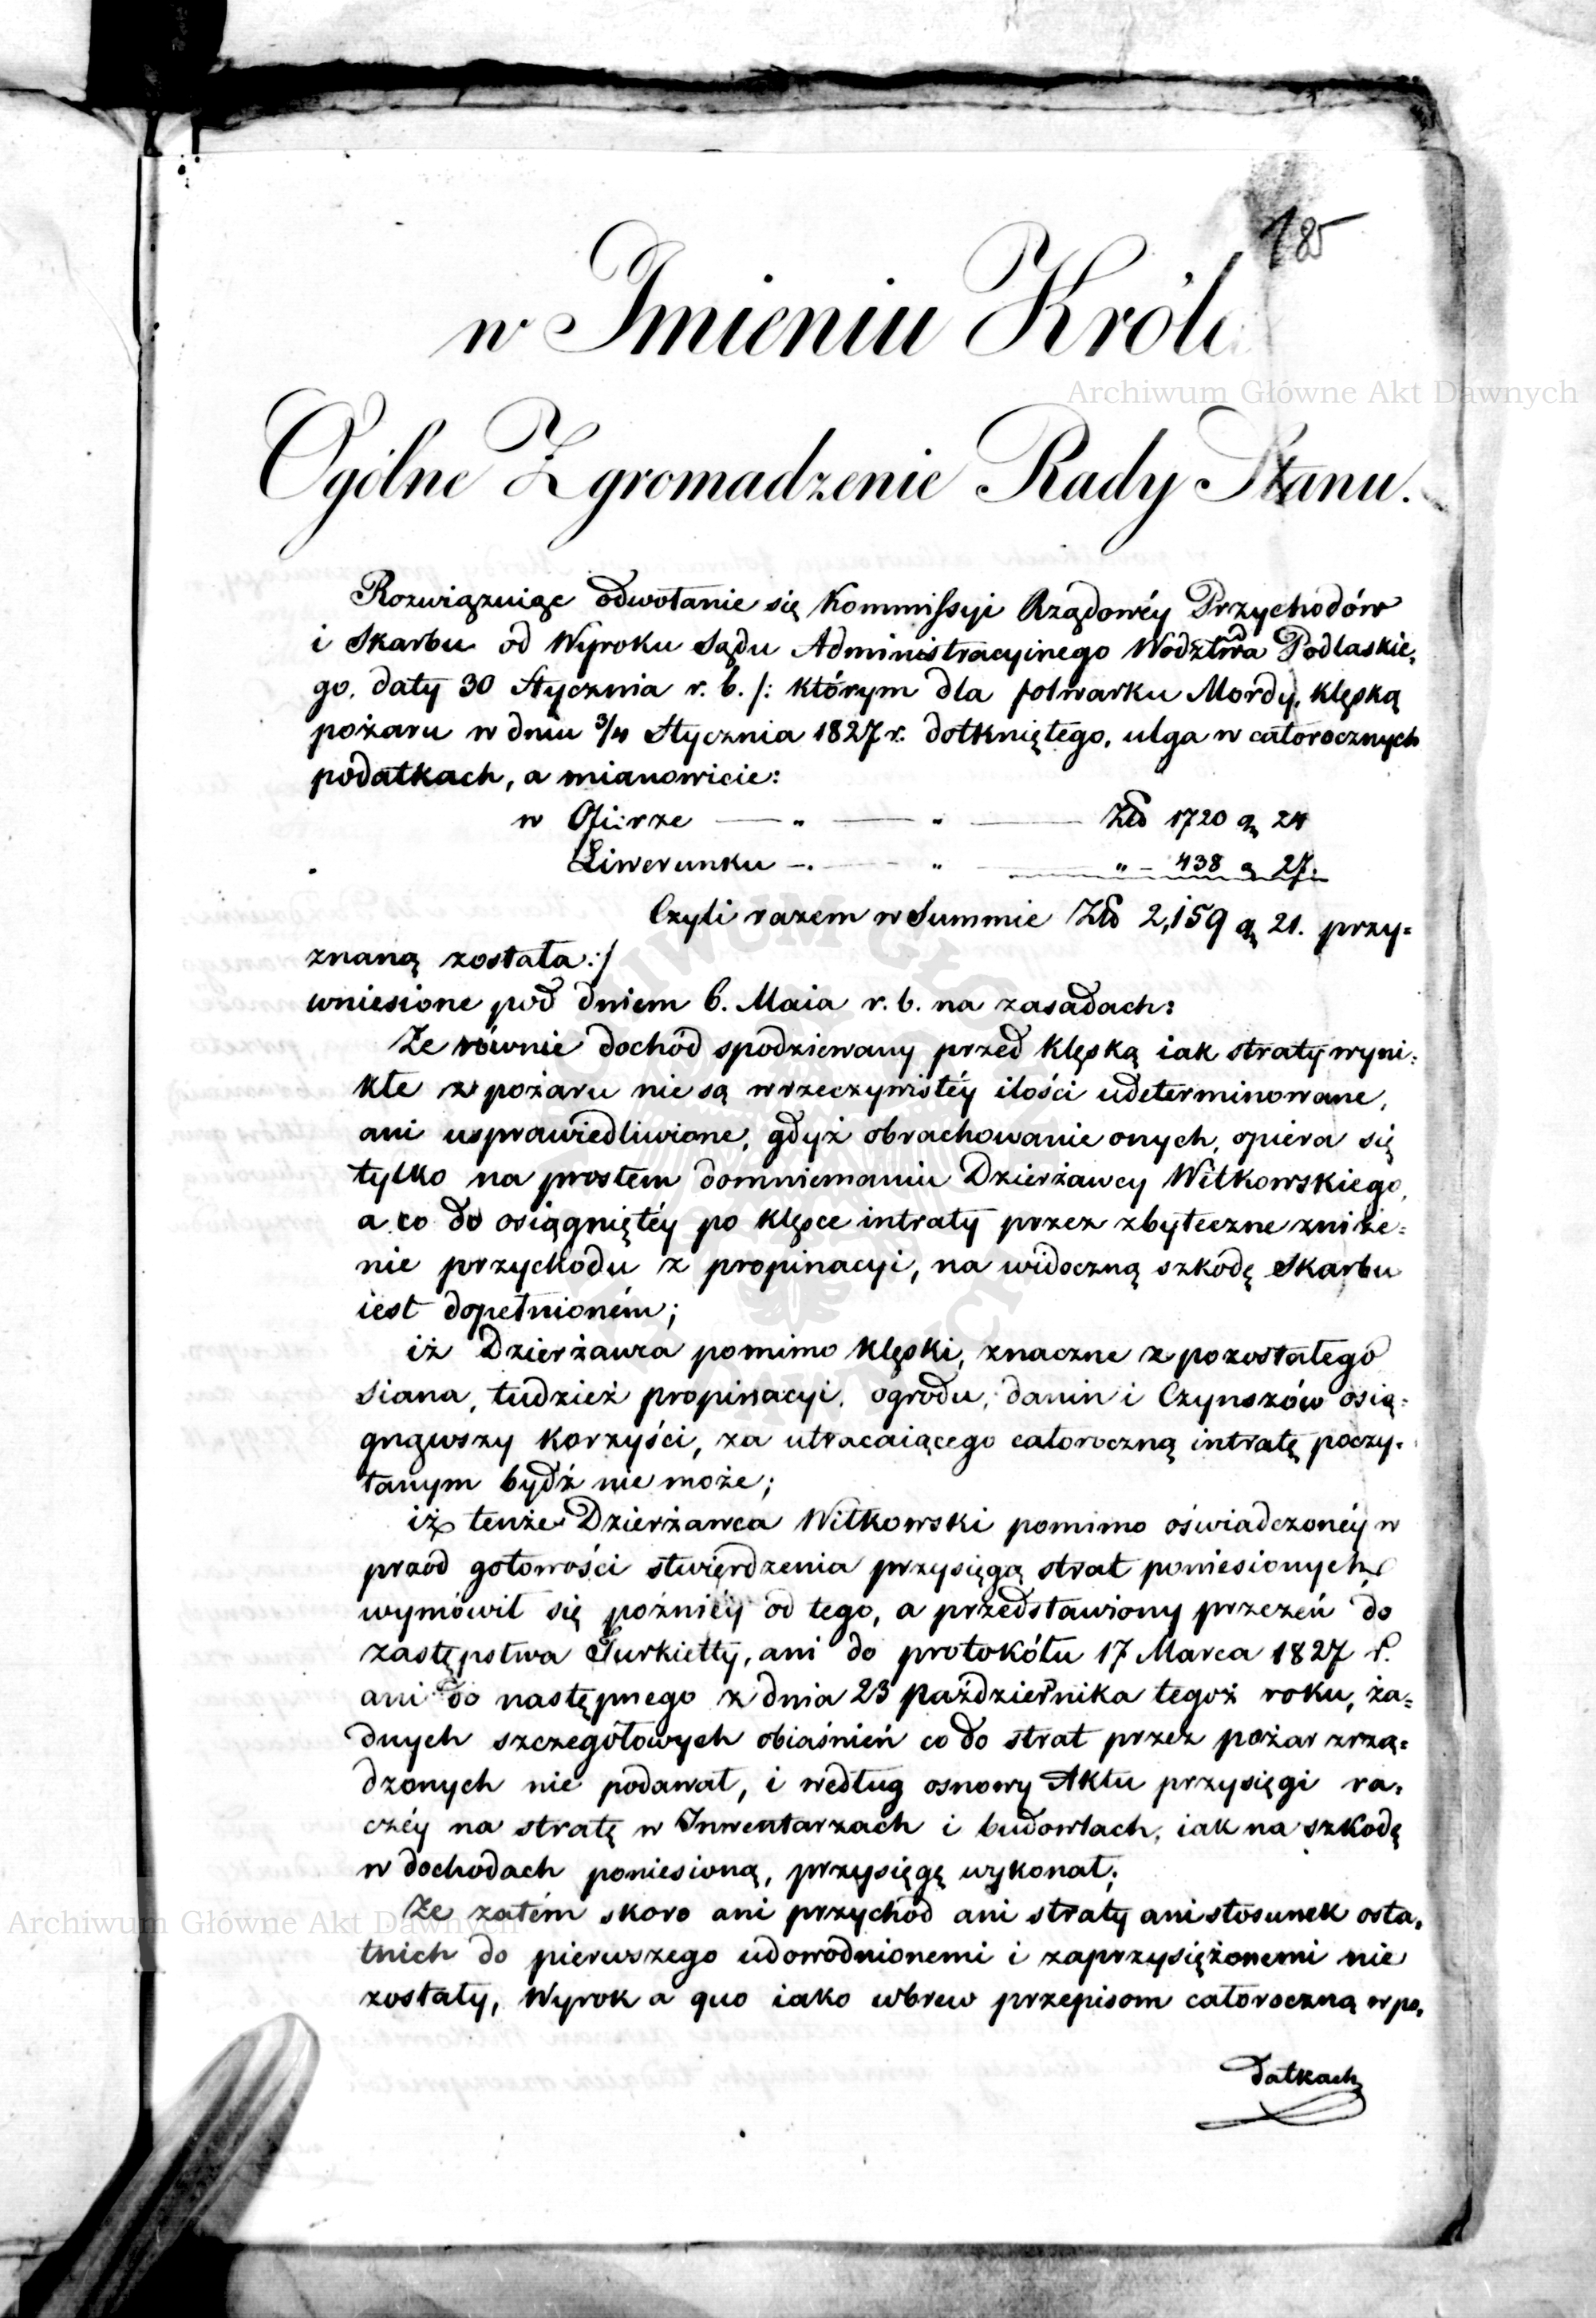 185
w Imieniu Króla
Ogólne Zgromadzenie Rady Stanu.
Rozwiązuiąc odwołanie się Kommissyi Rządowéy Przychodów
i Skarbu od Wyroku Sądu Administracyinego Wodztwa Podlaskie=
go, daty 30 Stycznia r. b. /: którym dla folwarku Mordy, klęską
pożaru w dniu 3/4 Stycznia 1827 r. dotkniętego, ulga w całorocznych
podatkach, a mianowicie:
w Ofierze — „ — „ — Złp 1720 g 24
Liwerunku — „ — „ — „ — 438 g 27.
Czyli razem w Summie Złp 2,159 g 21. przy=
znaną została:/
wniesione pod dniem 6. Maia r. b. na zasadach:
Że równie dochód spodziewany przed klęską iak straty wyni=
kłe z pożaru nie są w rzeczywistéy ilości udeterminowane,
ani usprawiedliwione, gdyż obrachowanie onych, opiera się
tylko na prostem domniemaniu Dzierżawcy Witkowskiego,
a co do osiągniętéy po klęsce intraty przez zbyteczne zniże=
nie przychodu z propinacyi, na widoczną szkodę Skarbu
iest dopełnioném;
iż Dzierżawca pomimo klęski, znaczne z pozostałego
siana, tudzież propinacyi, ogrodu, danin i Czynszów osią=
gnąwszy korzyści, za utracaiącego całoroczną intratę poczy=
tanym bydź nie może;
iż tenże Dzierżawca Witkowski pomimo oświadczonéy w
przód gotowości stwierdzenia przysięgą strat poniesionych,
wymówił się późniéy od tego, a przedstawiony przezeń do
zastępstwa Turkietty, ani do protokółu 17 Marca 1827 r.
ani do następnego z dnia 23 Października tegoż roku, ża=
dnych szczegółowych obiaśnień co do strat przez pożar zrzą=
dzonych nie podawał, i według osnowy Aktu przysięgi ra=
czéy na stratę w Inwentarzach i budowlach, iak na szkodę
w dochodach poniesioną, przysięgę wykonał;
Że zatém skoro ani przychód ani straty ani stosunek osta=
tnich do pierwszego udowodnionemi i zaprzysiężonemi nie
zostały, Wyrok a quo iako wbrew przepisom całoroczną w po=
datkach
Archiwum Główne Akt Dawnych
Archiwum Główne Akt Dawnych